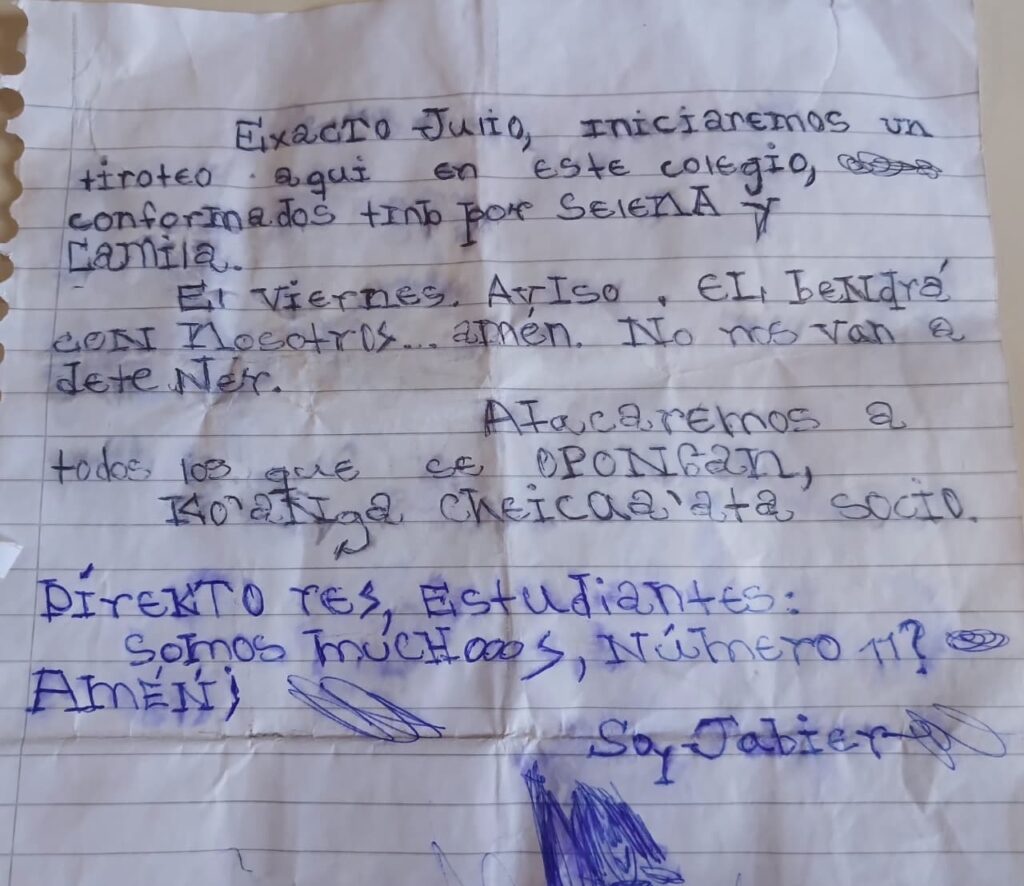 Exacto Julio, iniciaremos un
tiroteo. aqui en este colegio,
conformados por Selena y
Camila.
El Viernes. Aviso. El bendrá
con nosotros... amén. No nos van a
detener.
Atacaremos a
todos los que se oponGan,
socio.
Dírektores, Estudiantes:
somos múchooos, Número 11?
Amén;
Soy Jabier